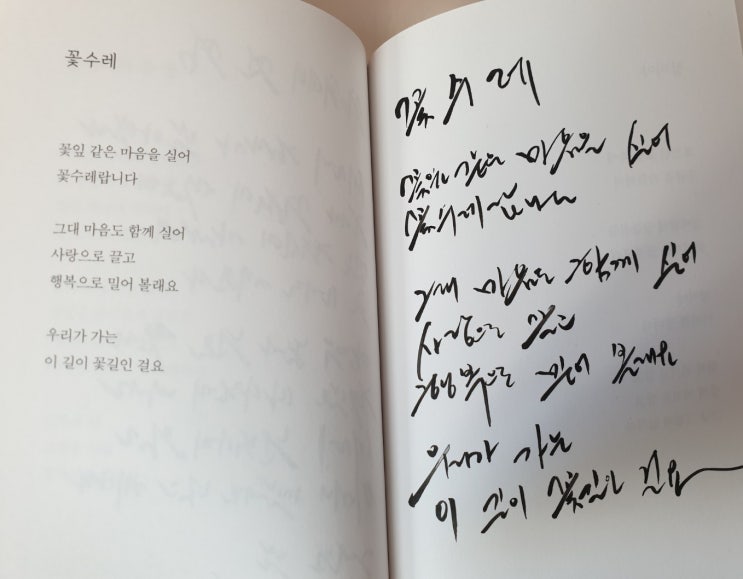 꽃수레
꽃잎 같은 마음을 실어
꽃수레랍니다
그대 마음도 함께 실어
사랑으로 끌고
행복으로 밀어 볼래요
우리가 가는
이 길이 꽃길인 걸요
꽃수레
꽃잎 같은 마음을 실어
꽃수레랍니다
그대 마음도 함께 실어
사랑으로 끌고
행복으로 밀어 볼래요
우리가 가는
이 길이 꽃길인 걸요